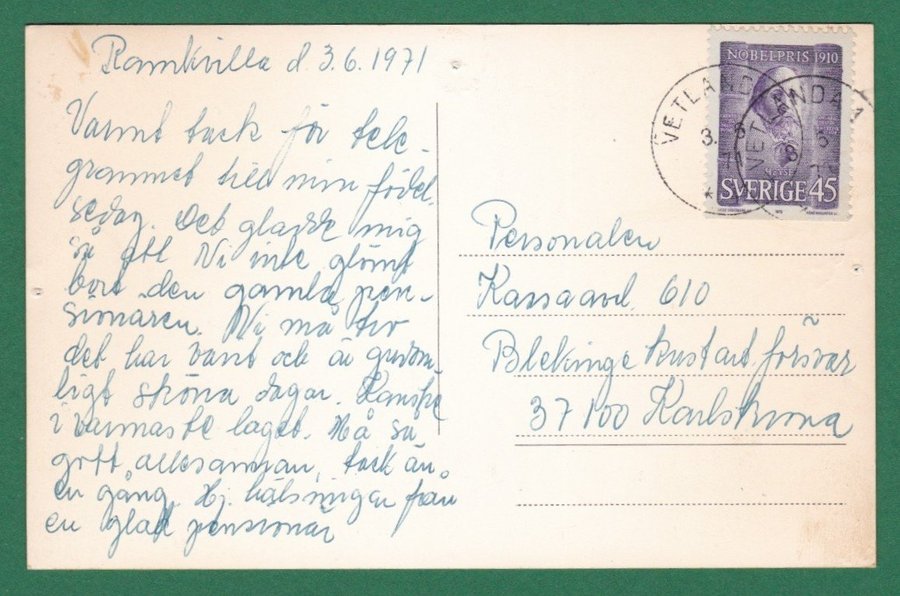 Ramkvilla d. 3.6.1971
Varmt tack för tele-
grammet till min födel-
sedag. Det gladde mig
så att Ni inte glömt
bort den gamla pen-
sionären. Ni må tro
det har varit och är gudom-
ligt sköna dagar. Kanske
i varmaste laget. Må så
gott allesamman, tack än-
en gång. Hj. hälsningar från
en glad pensionär
NOBELPRIS 1910
VETLANDA 1
3. 6
71
VETLANDA 1
SVERIGE 45
Personalen
Kassaavd. 610
Blekinge kustartförsvar
37100 Karlskrona